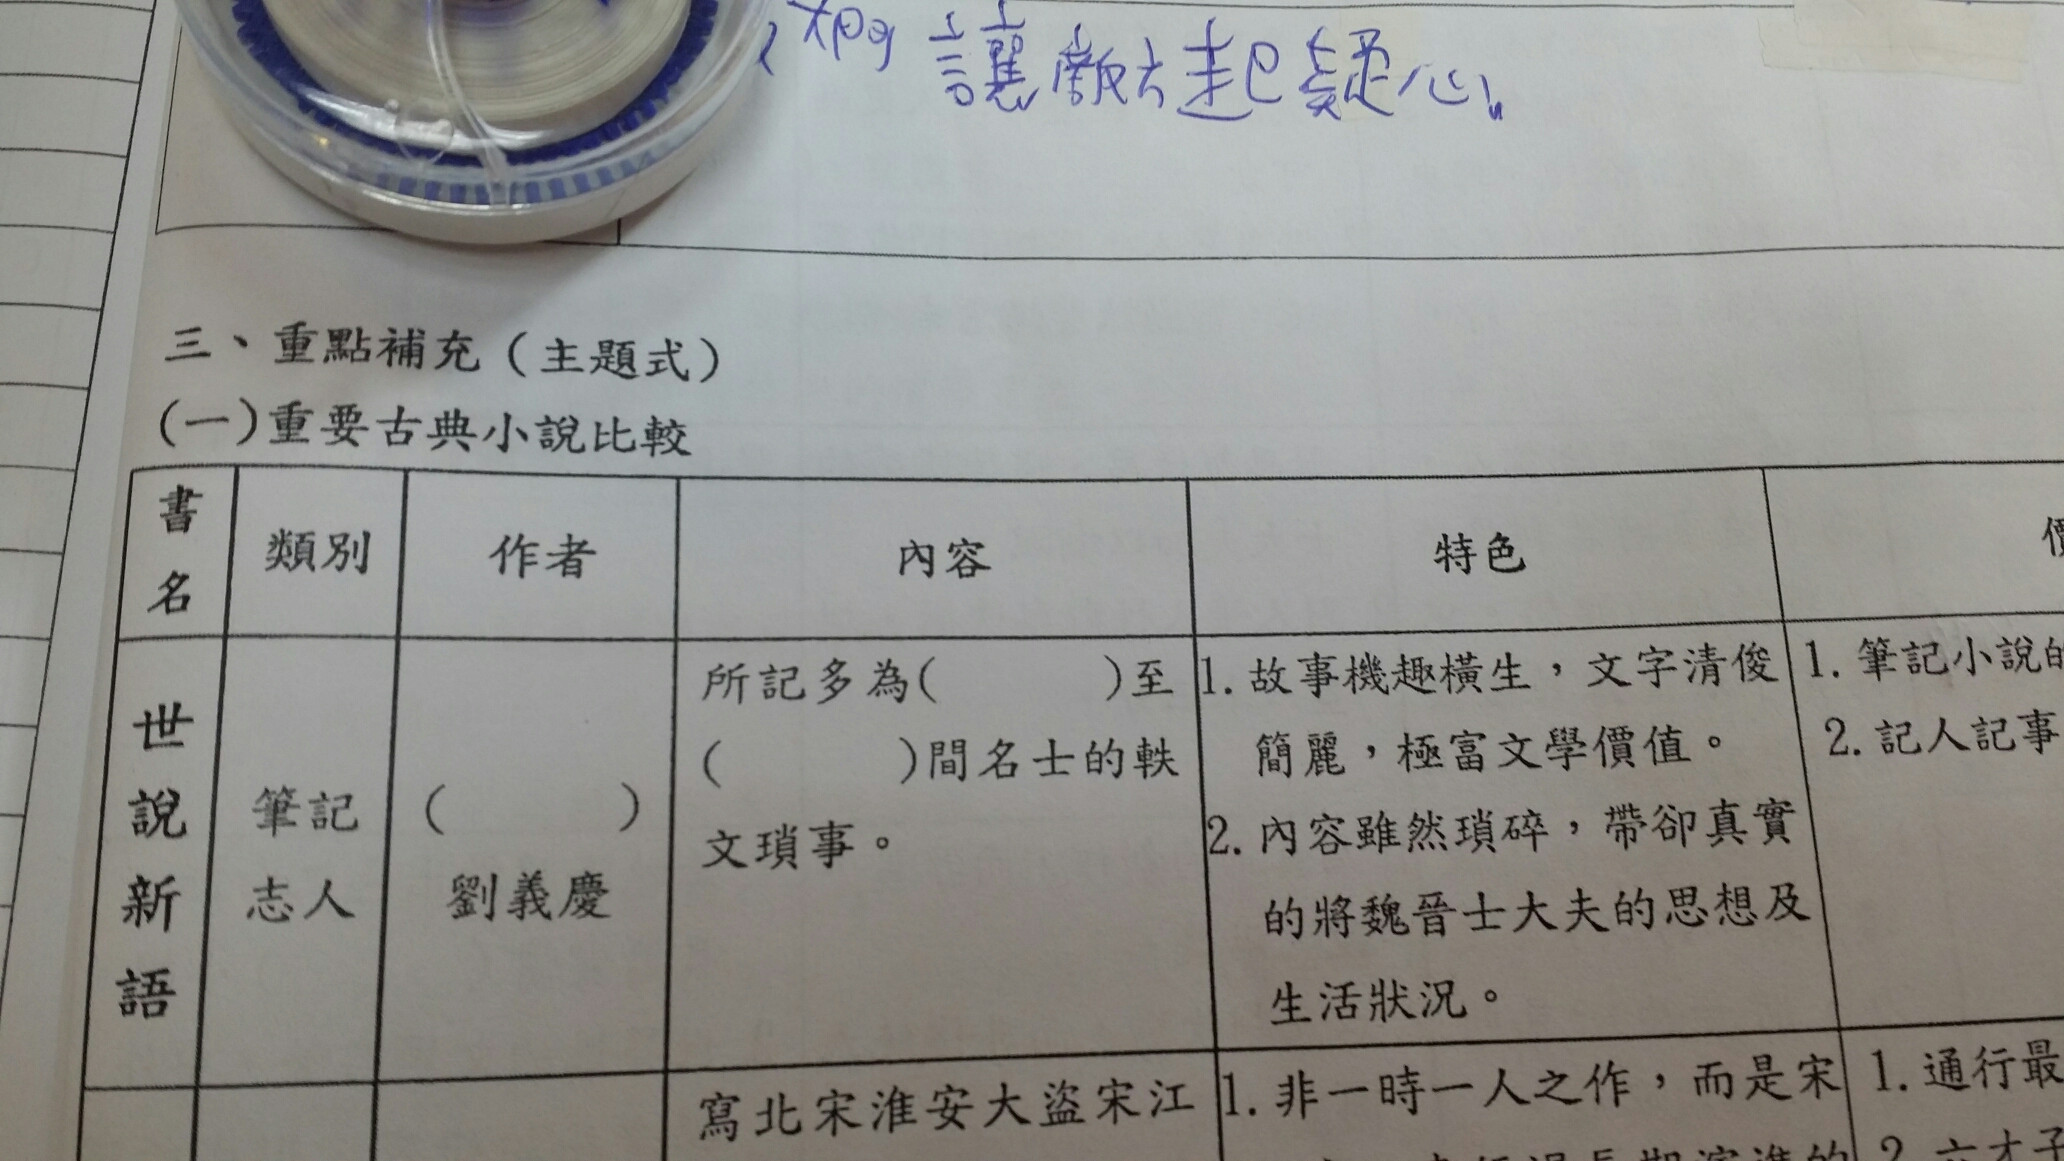 讓敵人起疑心。
三、重點補充（主題式）
(一)重要古典小說比較
書名
類別
作者
內容
特色
世說新語
筆記
志人
(　　　)
劉義慶
所記多為(　　　)至
(　　　)間名士的軼
文瑣事。
1. 故事機趣橫生，文字清俊
簡麗，極富文學價值。
2. 內容雖然瑣碎，帶卻真實
的將魏晉士大夫的思想及
生活狀況。
1. 筆記小說的
2. 記人記事
寫北宋淮安大盜宋江
1. 非一時一人之作，而是宋
長期演進的
1. 通行最
2. 六才子